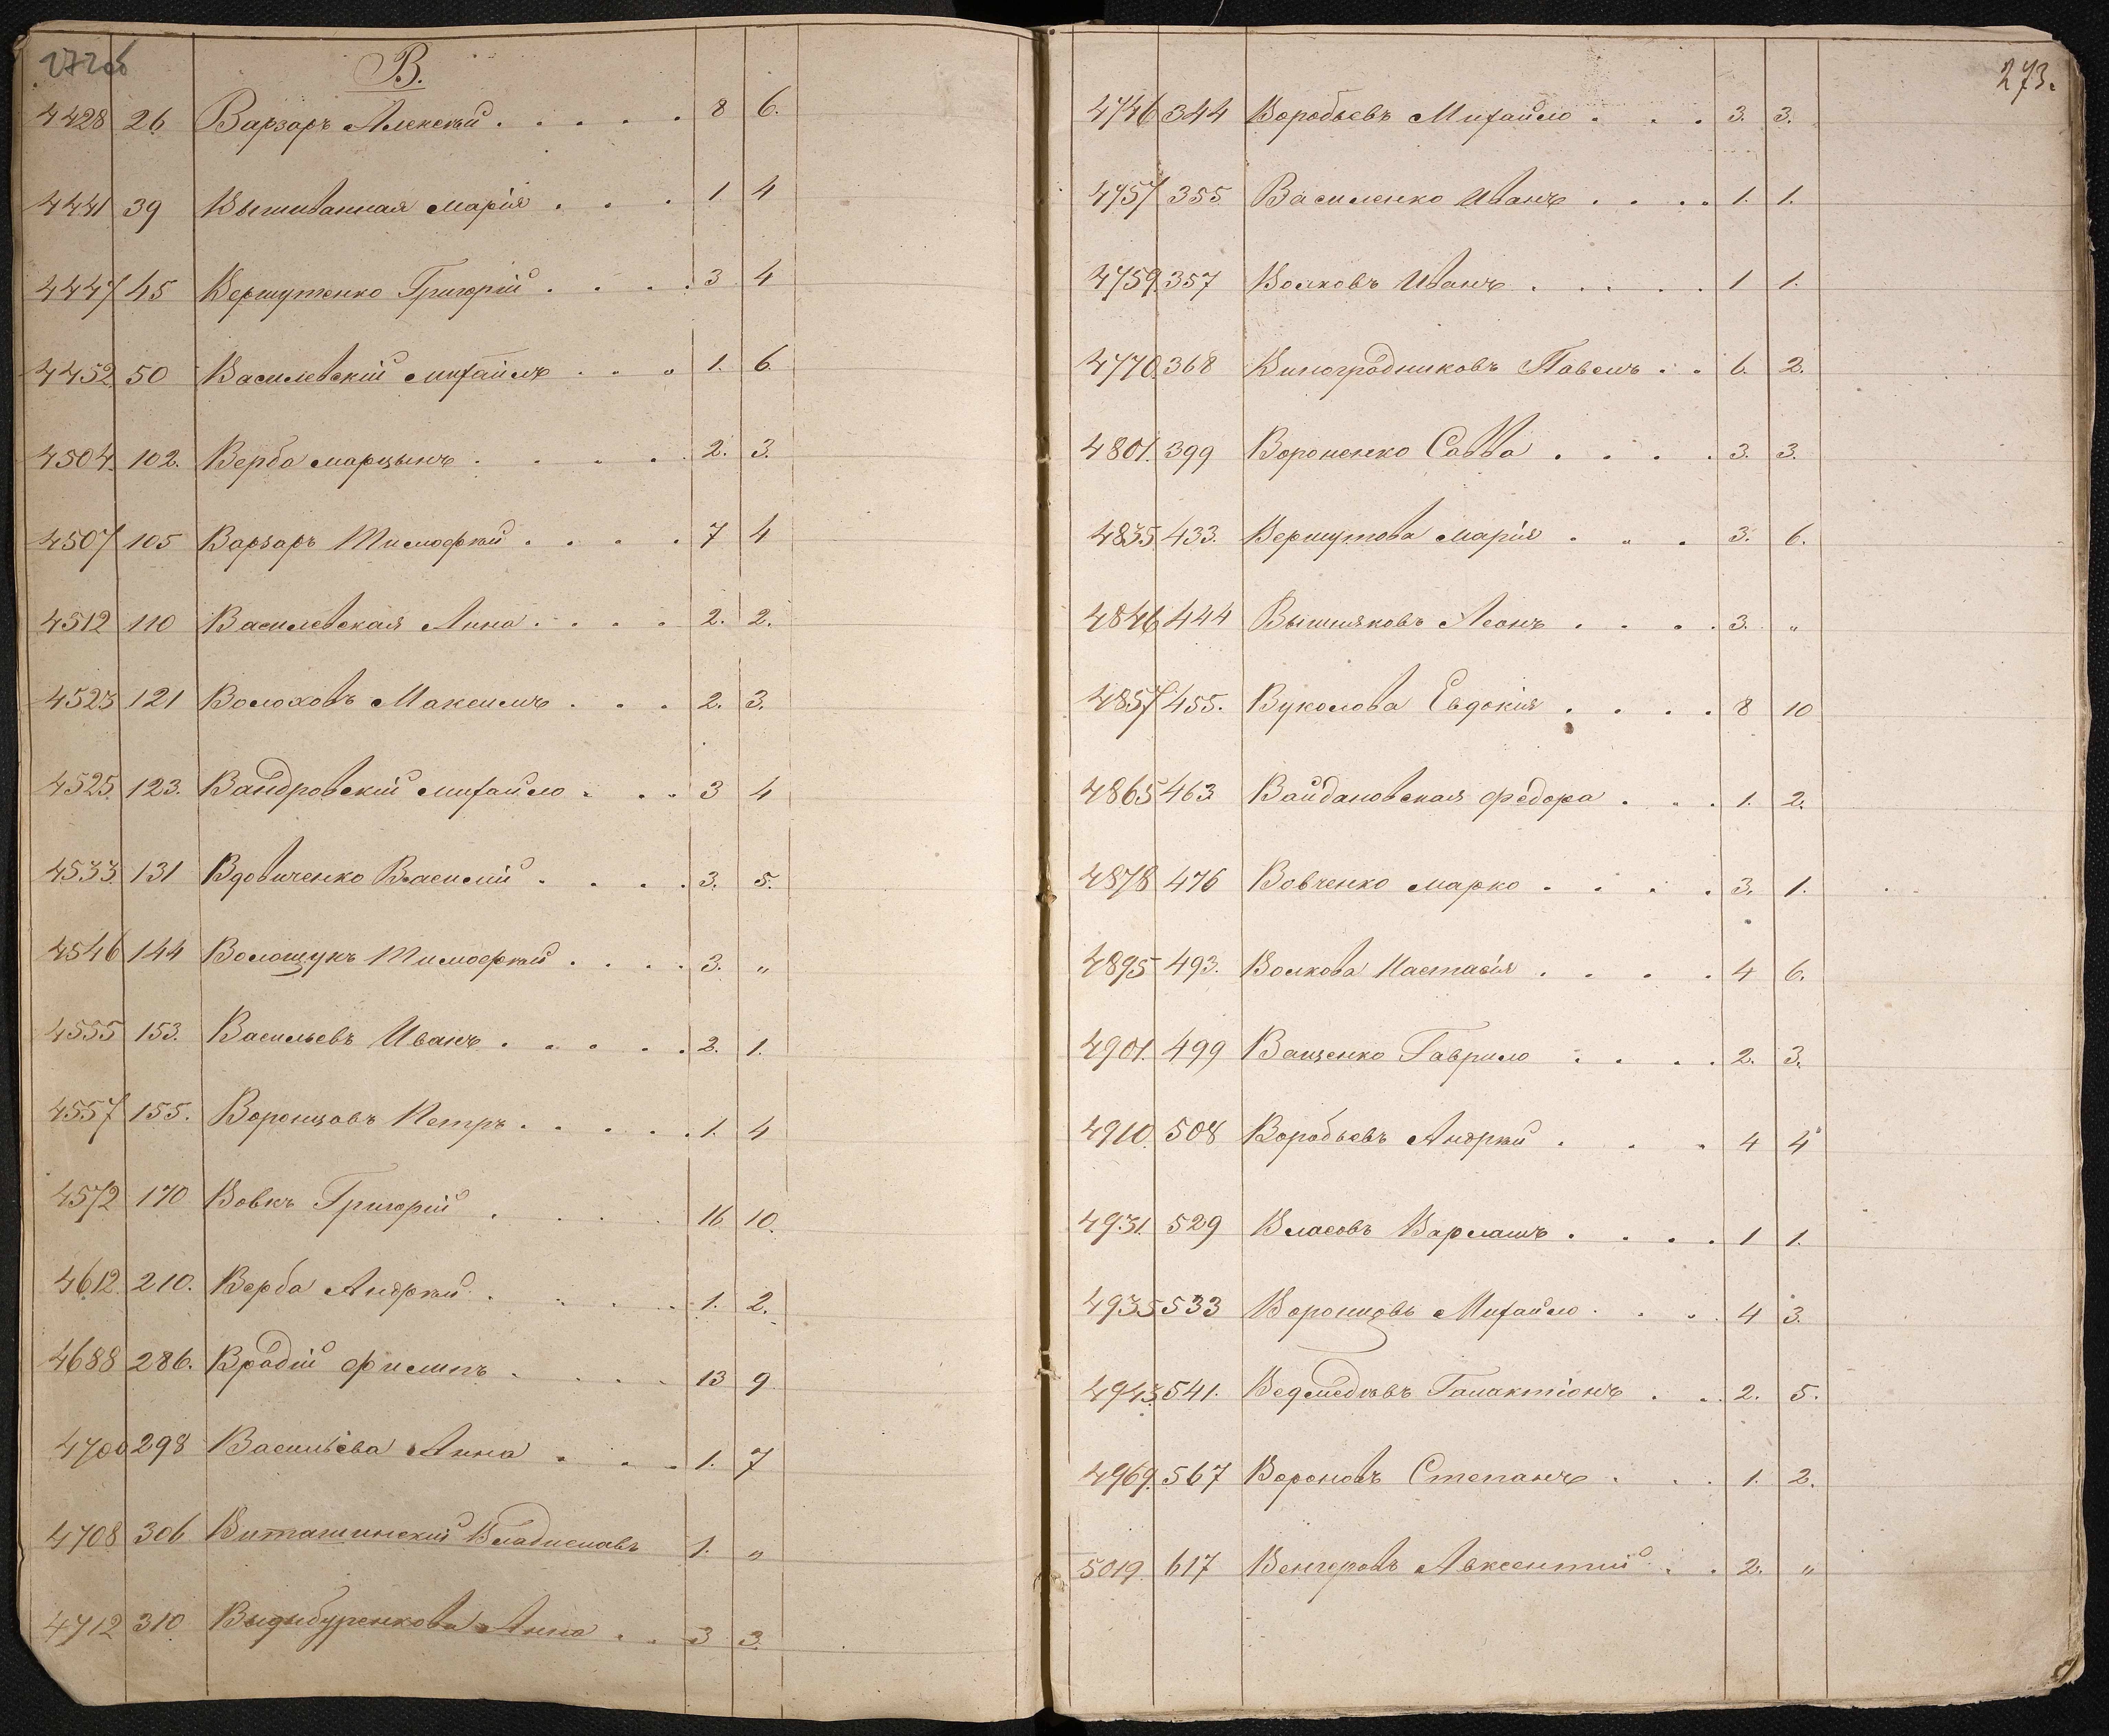 272об
В.
4428 26 Варзаръ Алексѣй . . . . . 8 6.
4441 39 Вышиванная Марія . . . 1 4
4447 45 Вершутенко Григорій . . . . 3 4
4452 50 Василевскій Михаилъ . . . 1. 6.
4504. 102. Верба Марцынъ . . . . . 2. 3.
4507 105 Варзаръ Тимофѣй . . . . 7 4
4512 110 Василевская Анна . . . . 2. 2.
4523 121 Волоховъ Максимъ . . . 2. 3.
4525. 123. Вандровскій Михайло . . . 3 4
4533. 131 Вдовиченко Василій . . . . 3. 5.
4546 144 Волощукъ Тимофѣй . . . . 3. „
4555 153. Васильевъ Иванъ . . . . . 2. 1.
4557 155. Воронцовъ Петръ . . . . . 1. 4
4572 170 Вовкъ Григорій . . . . 16 10.
4612. 210. Верба Андрѣй . . . . 1. 2.
4688 286. Врадій Филипъ . . . . 13 9
4700 298 Васильева Анна . . . 1. 7
4708 306 Виташинскій Владиславъ 1. „
4712 310 Выдыбуренкова Анна . . 3 3.
273.
4746 344 Воробьевъ Михайло . . . 3. 3.
4757 355 Василенко Иванъ . . . . 1. 1.
4759. 357 Волковъ Иванъ . . . . . 1 1.
4770. 368 Виноградниковъ Павелъ . . 6. 2.
4801. 399 Вороненко Савва . . . . 3. 3.
4835. 433. Вершутова Марія . . . 3. 6.
4846 444 Вышняковъ Леонъ . . . . 3. „
4857 455. Вуколова Евдокія . . . . 8 10
4865 463 Вайдановская Федора . . . 1. 2.
4878 476 Вовченко Марко . . . . 3. 1.
4895 493. Волкова Настасія . . . . 4 6.
4901. 499 Ващенко Гаврило . . . . 2. 3.
4910. 508 Воробьевъ Андрѣй . . . 4 4
4931. 529 Власовъ Варламъ . . . . 1 1.
4935 533 Воронцовъ Михайло . . . 4 3.
4943. 541. Ведмедѣвъ Галактіонъ . . 2. 5.
4969. 567 Вороновъ Степанъ . . . 1. 2.
5019. 617 Венгеровъ Авксентій . . 2. „